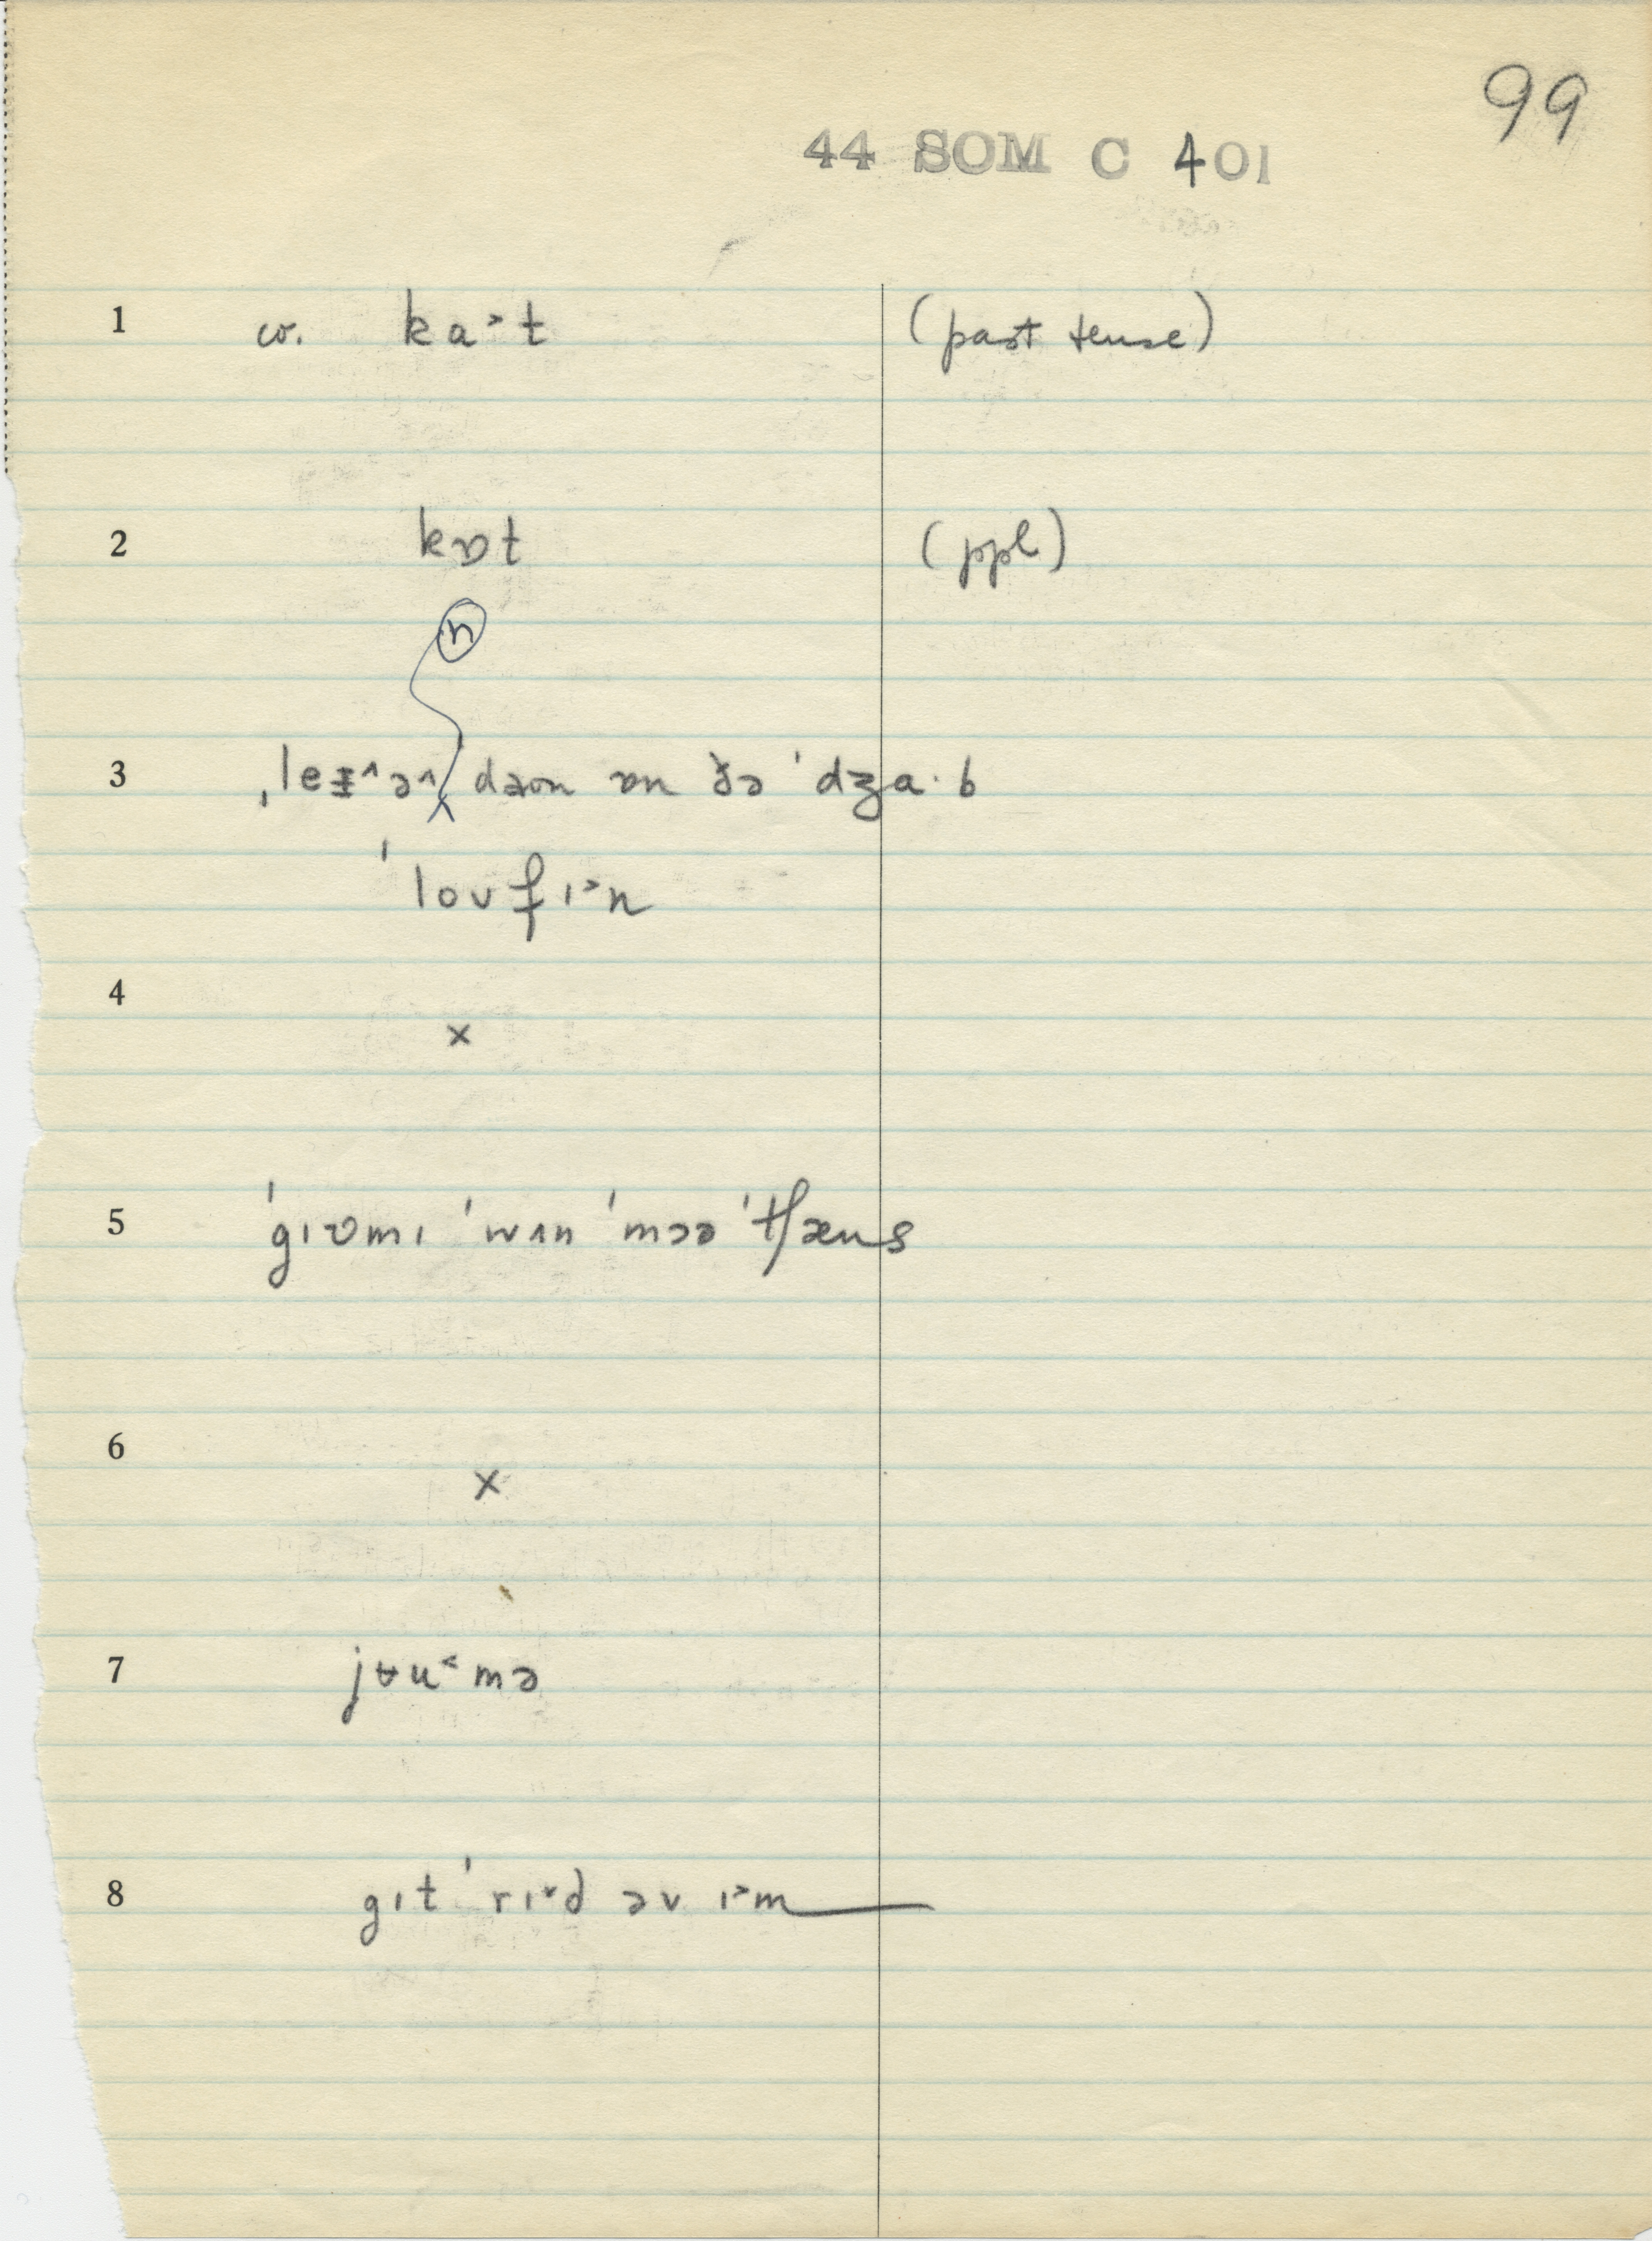 99
44 SOM C 401
1 cv. ka˃t (past tense)
2 kɒt (ppl)
n
3 ˌleɪ^ə^ daʊn ɒn ðə ˈdʒɑ·b
ˈloʊfɪ˃n
4 ×
5 ˈgɪʋmɪ ˈwʌn ˈmɔə ˈtʃæns
6 ×
7 jʉu˂mə
8 gɪt ˈrɪ˅d əv ɪ˃m